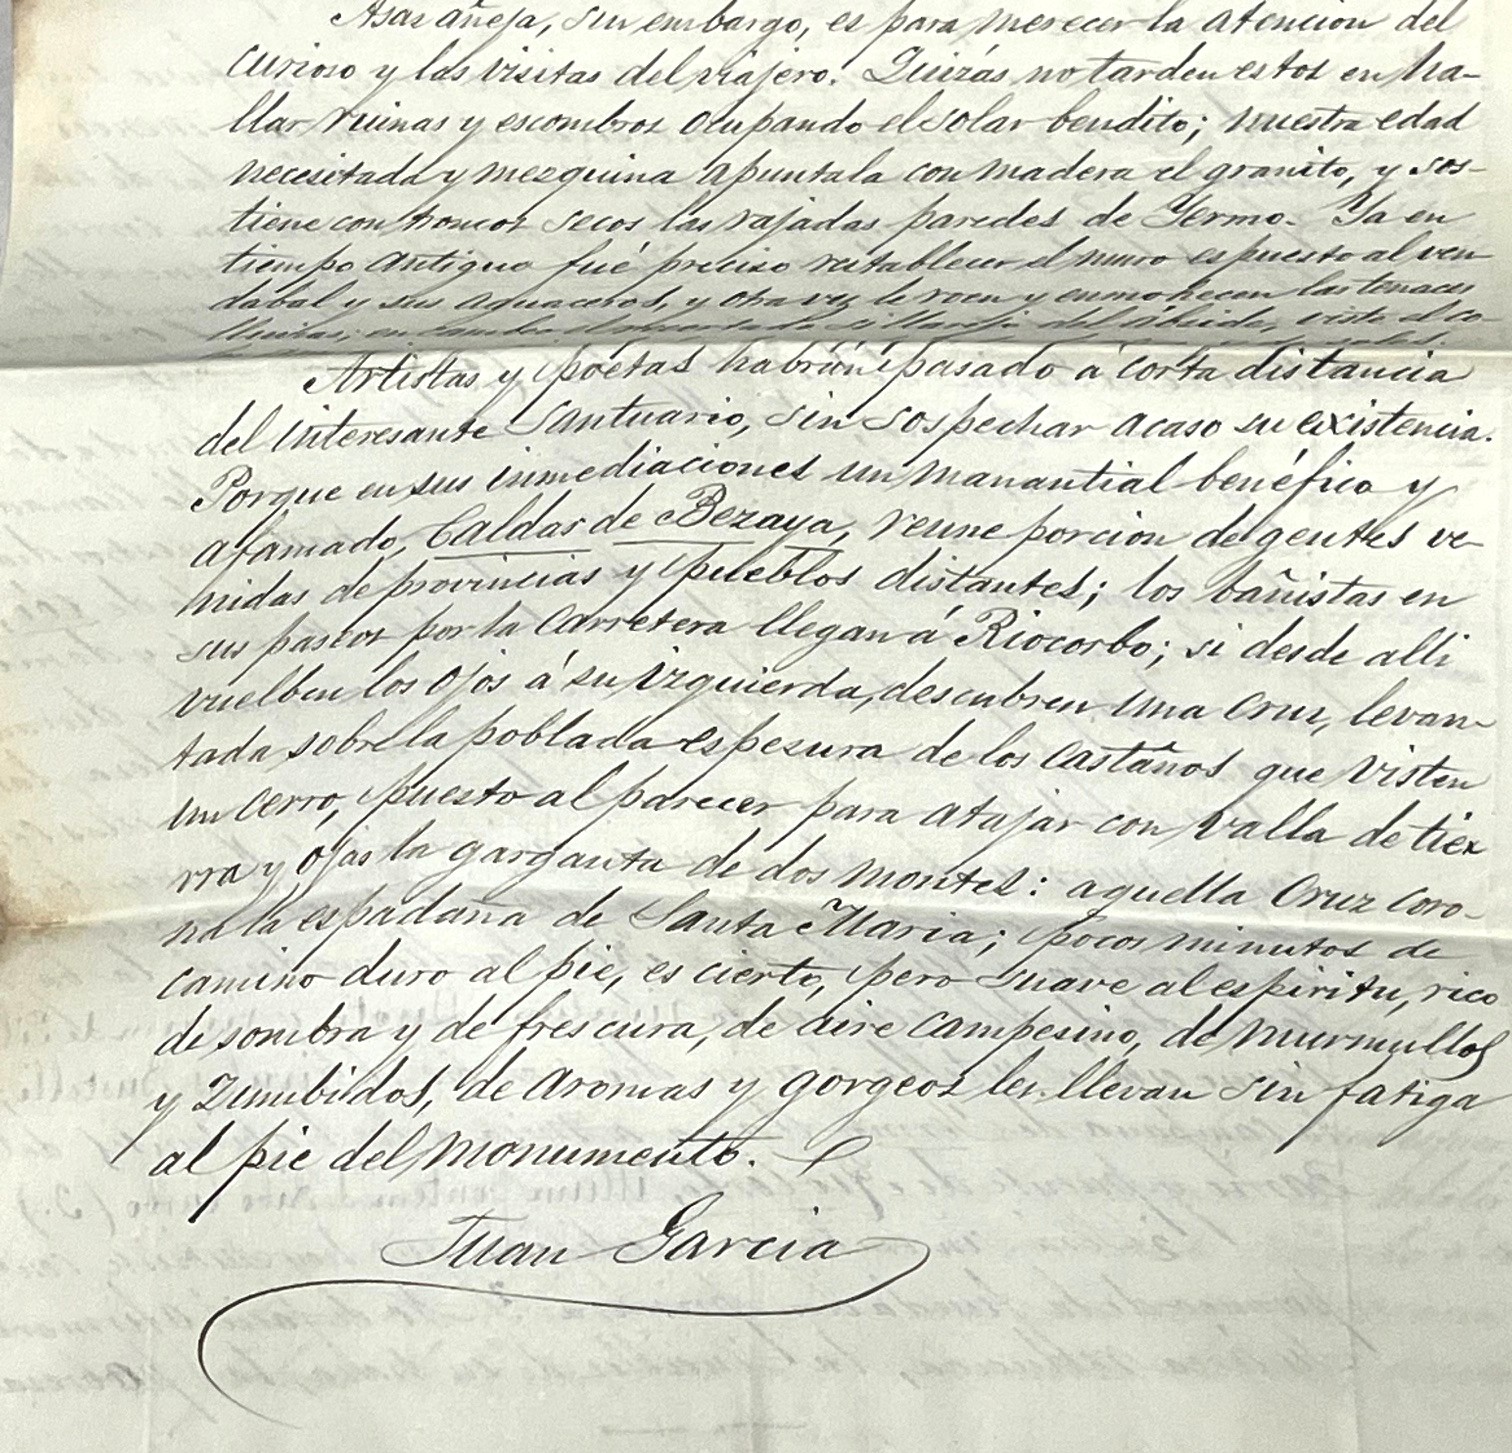 Asaz añeja, sin embargo, es para merecer la atencion del
curioso y las visitas del viajero. Quizás no tarden estos en ha-
llar ruinas y escombros ocupando el solar bendito; nuestra edad
necesitada y mezquina apuntala con madera el granito, y sos-
tiene con troncos secos las rajadas paredes de Yermo. Ya en
tiempo antiguo fué preciso restablecer el muro espuesto al ven-
dabal y sus aguaceros, y otra vez le roen y enmohecen las tenaces
lluvias; en cambio el del ábside, viste el co-
Artistas y poetas habrán pasado á corta distancia
del interesante Santuario, sin sospechar acaso su existencia.
Porque en sus inmediaciones un manantial benéfico y
afamado, Caldas de Bezaya, reune porcion de gentes ve-
nidas de provincias y pueblos distantes; los bañistas en
sus paseos por la carretera llegan á Riocorbo; si desde alli
vuelben los ojos á su izquierda, descubren una Cruz, levan-
tada sobre la poblada espesura de los castaños que visten
un cerro, puesto al parecer para atajar con valla de tier
rra y ojas la garganta de dos montes: aquella Cruz coro-
na la espadaña de Santa Maria; pocos minutos de
camino duro al pie, es cierto, pero suave al espiritu, rico
de sombra y de frescura, de aire campesino, de murmullos
y zumbidos, de aromas y gorgeos les llevan sin fatiga
al pie del monumento.
Juan Garcia